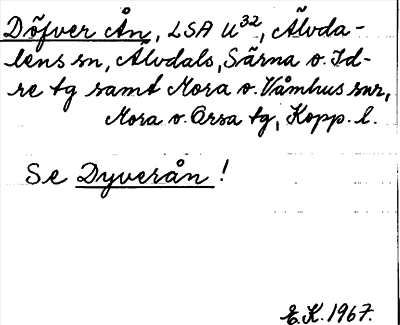 Döfver Ån, LSA U32, Älvda-
lens sn, Älvdals, Särna o. Id-
re tg samt Mora o. Våmhus snr,
Mora o. Orsa tg, Kopp. l.
Se Dyverån!
E.K. 1967.